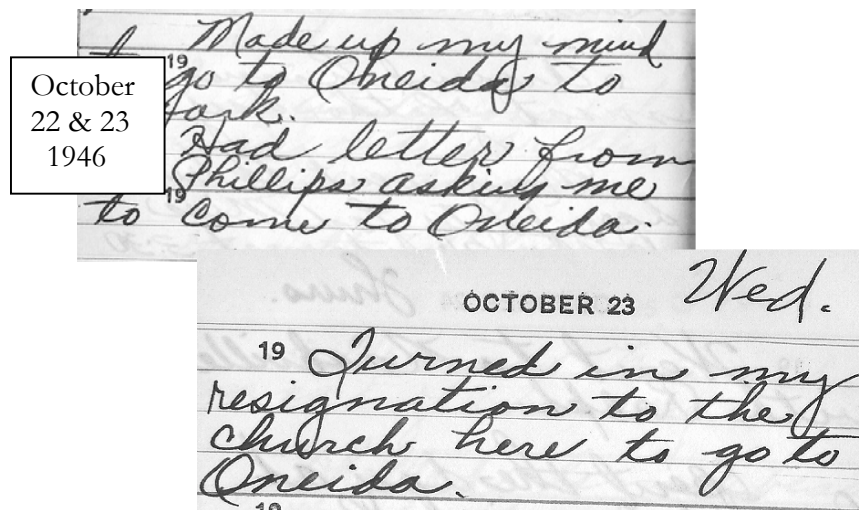 October
22 & 23
1946
Made up my mind
19
to go to Oneida to
work.
Had letter from
Phillips asking me
19
to come to Oneida.
OCTOBER 23 Wed.
19 Turned in my
resignation to the
church here to go to
Oneida.
19